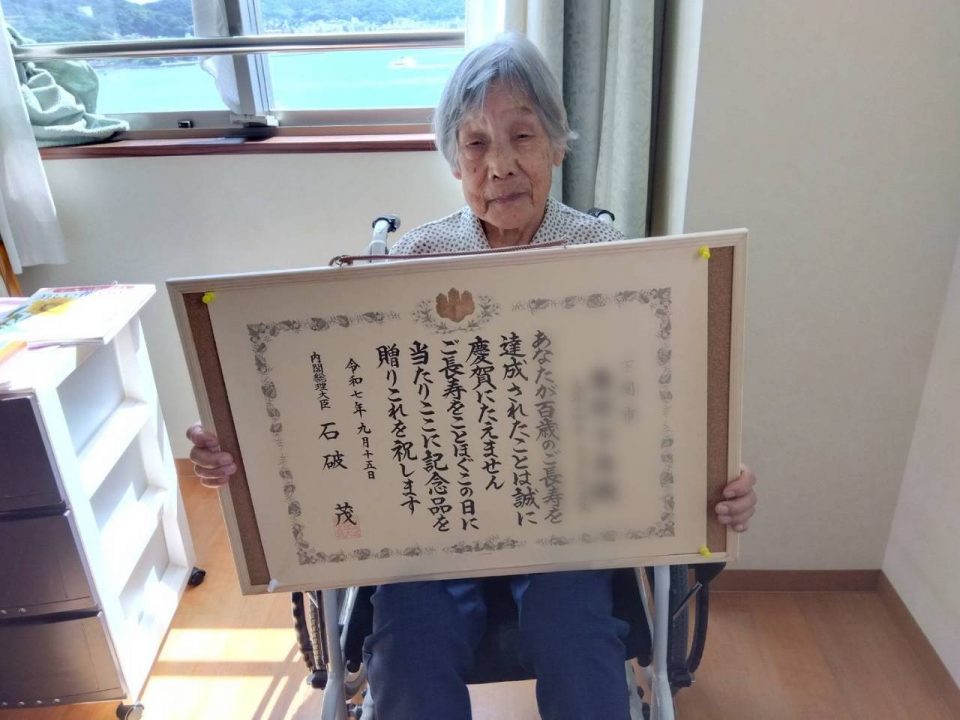 下関市
あなたが百歳のご長寿を
達成されたことは誠に
慶賀にたえません
ご長寿をことほぐこの日に
当たりここに記念品を
贈りこれを祝します
令和七年九月十五日
内閣総理大臣 石破 茂